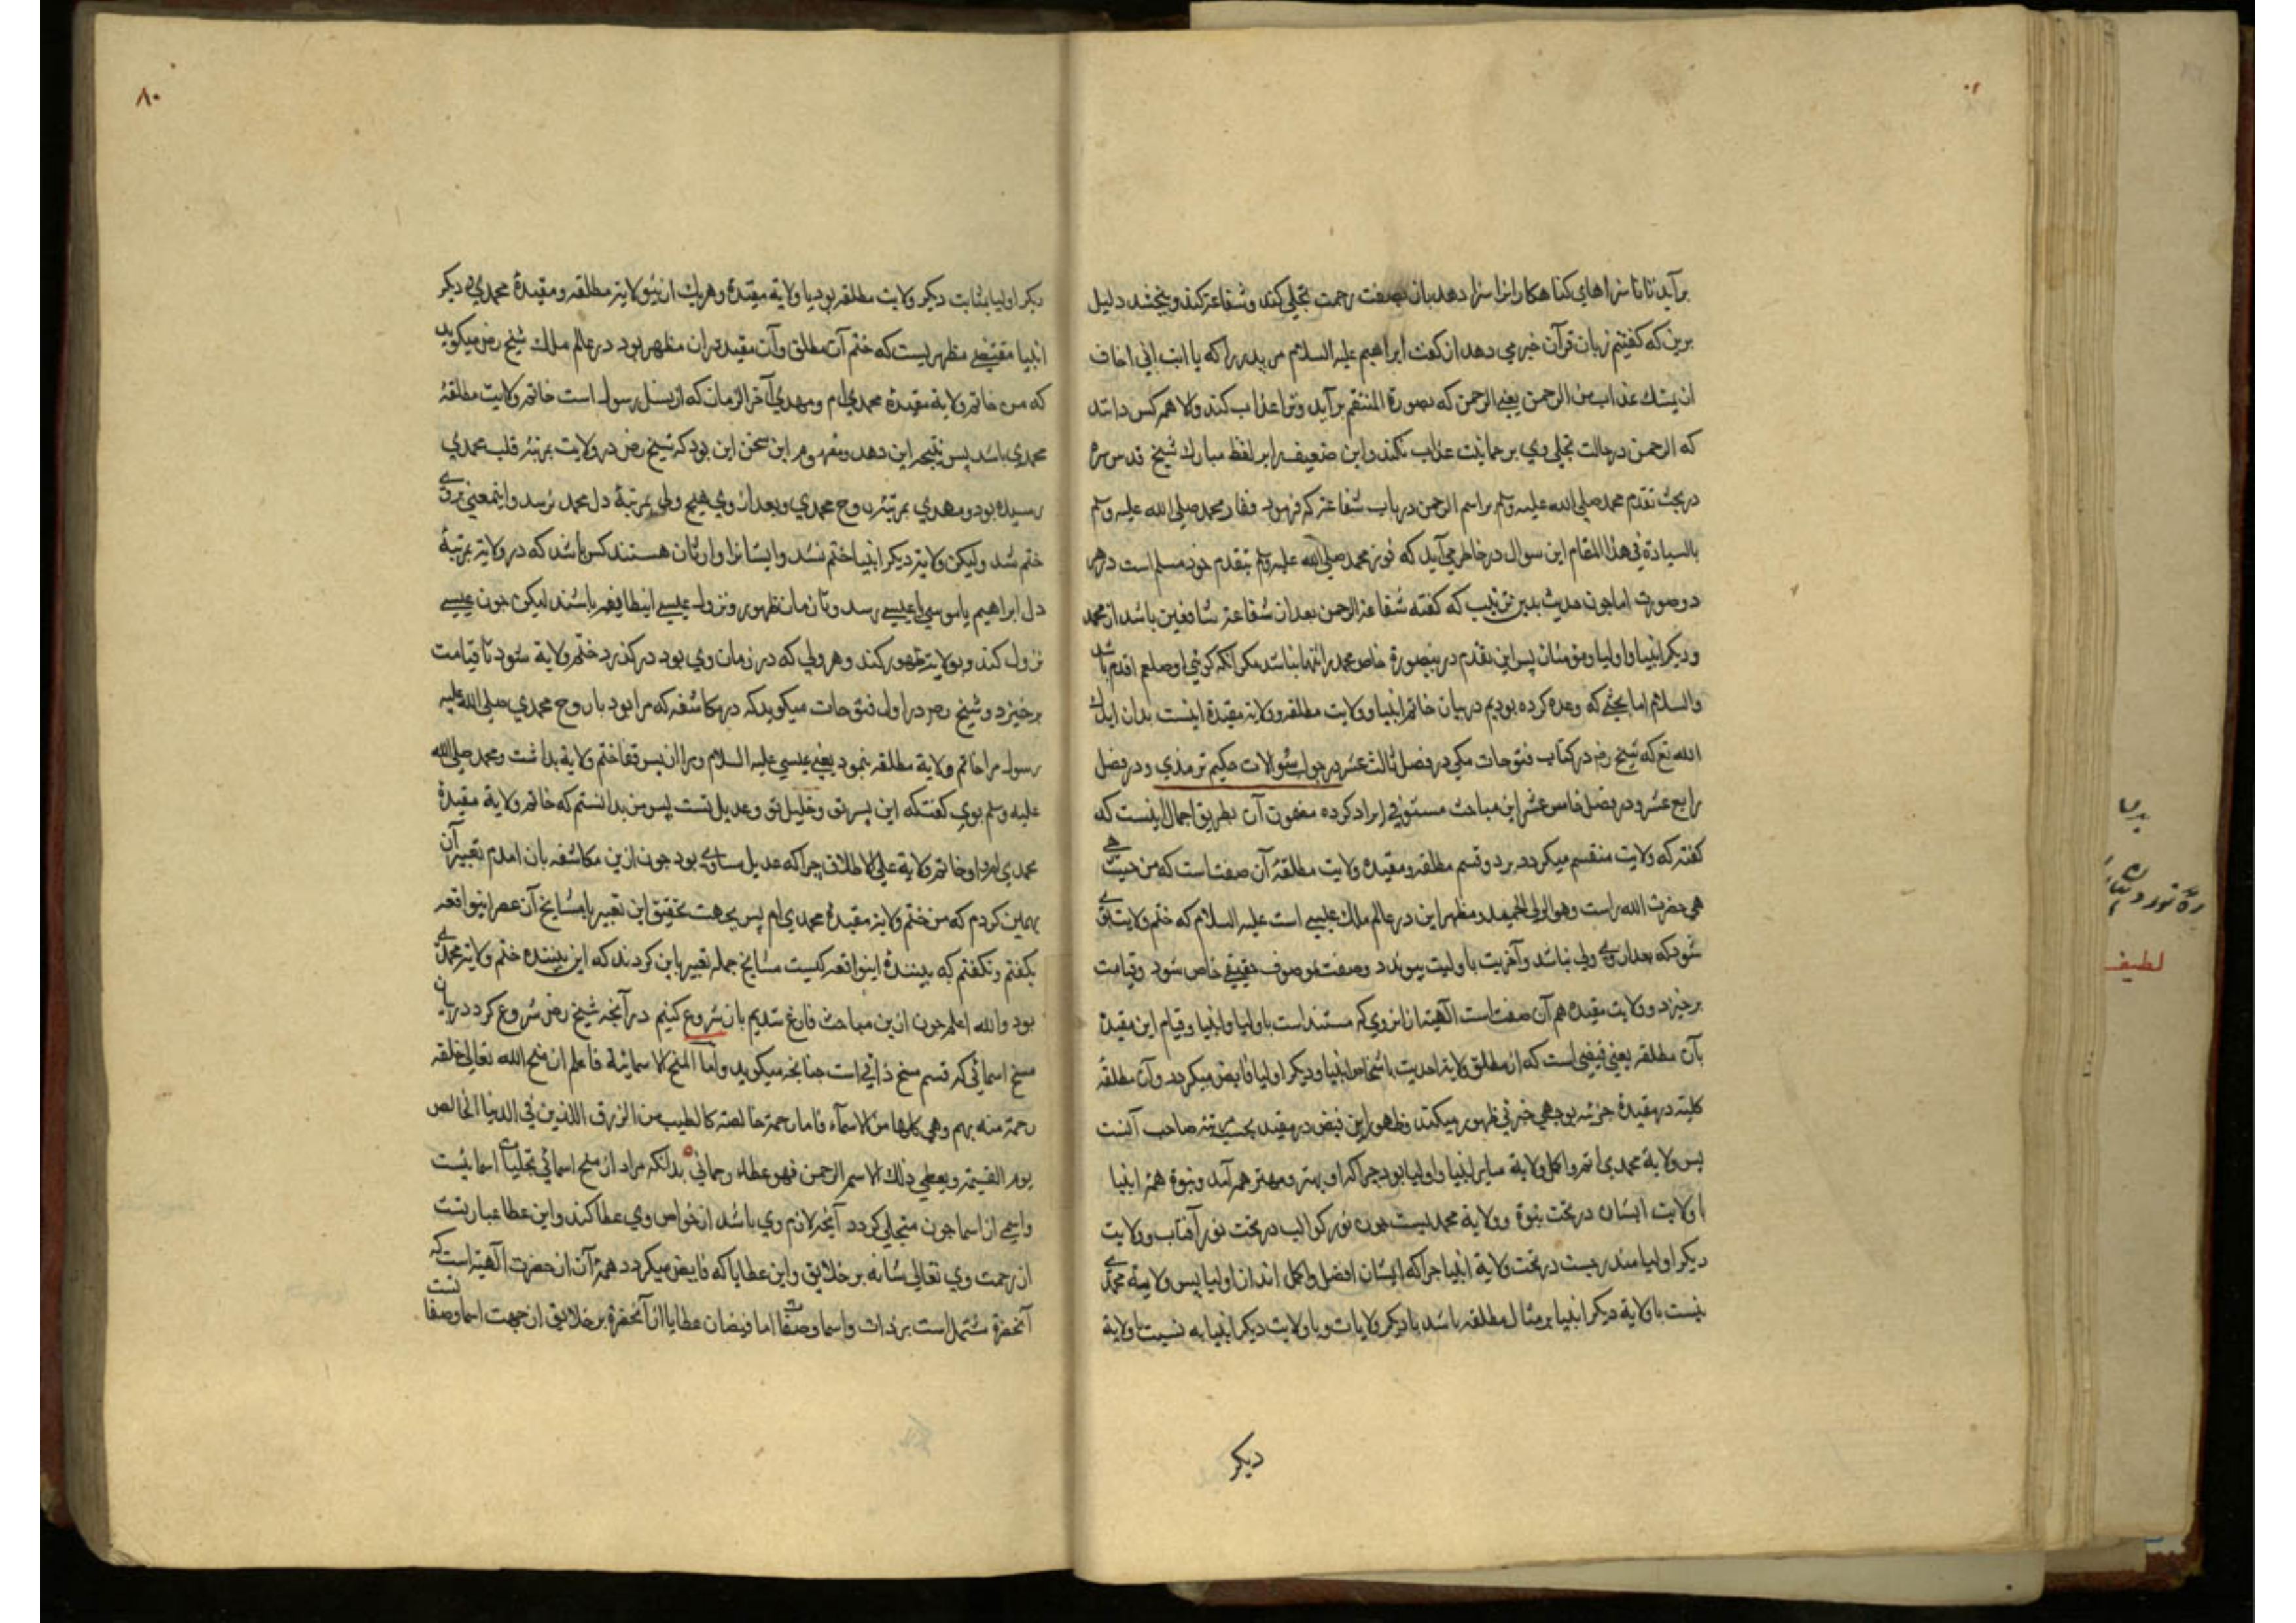 برآید تا تا سزاهای کناهکارانرا سزا دهد بان بصفت رحمت تجلی کند و شفاعة کند و ببخشد دلیل
برین که کفتیم زبان قرآن خبر می دهد از کفت ابراهیم علیه السلام مر پدر را که یا ابت انی اخاف
ان یمسک عذاب من الرحمن یعنی الرحمن که بصورة المنتقم برآید و ترا عذاب کند و الا همه کس دانند
که الرحمن در حالت تجلی وی بر حمانیت عذاب نکند و این ضعیف را بر لفظ مبارک شیخ قدس سره
در بحث تقدم محمد صلی الله علیه وسلم بر اسم الرحمن در باب شفاعة که فرمود ففاز محمد صلی الله علیه وسلم
بالسیادة فی هذا المقام این سوال در خاطر می آید که فوز محمد صلی الله علیه وسلم بتقدم خود مسلم است در هر
دو صورت اما چون حدیث بدین ترتیب که کفته شفاعة الرحمن بعد از شفاعة شافعین باشد از محمد
و دیکر انبیا و اولیا و مؤمنان پس این تقدم درینصورة خاص محمد را تنها نباشد مکر آنکه کوئی او صلعم اقدم باشد
والسلام اما بحثی که وعده کرده بودیم در بیان خاتم انبیا و ولایت مطلقه و ولایة مقیدة اینست بدان ایدک
الله تع که شیخ رض در کتاب فتوحات مکی در فصل ثالث عشر در جواب سوالات حکیم ترمذی و در فصل
رابع عشر و در فصل خامس عشر این مباحث مستوفی ایراد کرده مضمون آن بطریق اجمال اینست که
کفته که ولایت منقسم میکردد بر دو قسم مطلقه و مقیده ولایت مطلقه آن صفت است که من حیث هی
هی حضرت الله راست وهو الولی الحمید و مظهر این در عالم ملک عیسی است علیه السلام که ختم ولایت بوی
شود که بعد از وی ولی نباشد و آخریت باولیت پیوندد و صفت بموصوف حقیقی خاص شود و قیامت
برخیزد و ولایت مقیده هم آن صفت است الهیة از انروی که مستند است باولیا و انبیا و قیام این مقیدة
بآن مطلقه یعنی فیضی است که از مطلق ولایة احدیت باشخاص انبیا و دیکر اولیا فایض میکردد و آن مطلقه
کلیة در مقیدة جزئیه بوجهی جزئی ظهور میکند و ظهور این فیض در مقید بحسب مرتبه صاحب آنست
پس ولایة محمدی اتم و اکمل ولایة سایر انبیا و اولیا بود چرا که او بهتر و مهتر همه آمد و نبوة همه انبیا
با ولایت ایشان در تحت نبوة و ولایة محمدیست چون نور کواکب در تحت نور آفتاب و ولایت
دیکر اولیا مندرجست در تحت ولایة انبیا چرا که ایشان افضل و اکمل اند از اولیا پس ولایة محمدی
نسبت با ولایة دیکر انبیا بر مثال مطلقه باشد با دیکر ولایات و با ولایت دیکر انبیا به نسبت با ولایة
دیکر
۸۰
دیکر اولیا بمثابت دیکر ولایت مطلقه بود با ولایة مقیدة و هر یک ازینو ولایة مطلقه و مقیدة محمدی و دیکر
انبیا مقتضی مظهریست که ختم آن مطلق و آن مقید در ان مظهر بود در عالم ملک شیخ رض میکوید
که من خاتم ولایة مقیدة محمدی ام و مهدی آخر الزمان که از نسل رسول است خاتم ولایت مطلقة
محمدی باشد پس نتیجه این دهد و مفهوم این سخن این بود که شیخ رض در ولایت بمرتبه قلب محمدی
رسیده بود و مهدی بمرتبه روح محمدی و بعد از وی هیچ ولی بمرتبة دل محمد نرسد و اینمعنی بر وی
ختم شد ولیکن ولایة دیکر انبیا ختم نشد و ایشانرا وارثان هستند کس باشد که در ولایة بمرتبة
دل ابراهیم یا موسی یا عیسی رسد و تا زمان ظهور و نزول عیسی اینطایفه باشند لیکن چون عیسی
نزول کند و بولایة ظهور کند و هر ولی که در زمان وی بود در کذرد ختم ولایة شود تا قیامت
برخیزد و شیخ رض در اول فتوحات میکوید که در مکاشفه که مرا بود با روح محمدی صلی الله علیه
رسول مرا خاتم ولایة مطلقه بنمود یعنی عیسی علیه السلام و مرا از پس قفا ختم ولایة بداشت و محمد صلی الله
علیه وسلم بوی کفت که این پسر تو و خلیل تو و عدیل تست پس من بدانستم که خاتم ولایة مقیدة
محمدی ام و او خاتم ولایة علی الاطلاق چرا که عدیل مساوی بود چون ازین مکاشفه بان امدم تعبیر آن
بهمین کردم که من ختم ولایة مقیدة محمدی ام پس بجهت تحقیق این تعبیر با مشایخ آن عصر اینواقعه
بکفتم و نکفتم که بینندة اینواقعه کیست مشایخ جمله تعبیر باین کردند که این بیننده ختم ولایة محمدی
بود والله اعلم چون ازین مباحث فارغ شدیم بان شروع کنیم در آنچه شیخ رض شروع کرد در بیان
منح اسمائی که قسم منح ذاتی است چنانچه میکوید و اما المنح الاسمائیة فاعلم ان منح الله تعالی خلقه
رحمة منه بهم وهی کلها من الاسمآء فاما رحمة خالصة کالطیب من الرزق اللذیذ فی الدنیا الخالص
یوم القیمة و یعطی ذلک الاسم الرحمن فهو عطاء رحمانی بدانکه مراد از منح اسمائی تجلیات اسمائیست
و اسمی از اسما چون متجلی کردد آنچه لازم وی باشد از خواص وی عطا کند و این عطا عبارتست
از رحمت وی تعالی شانه بر خلایق و این عطایا که فایض میکردد همه آن از حضرت الهیة است که
آنحضرة مشتمل است بر ذات و اسما و صفات اما فیضان عطایا از آنحضرة بر خلایق از جهت اسما و صفاتست
لطیف